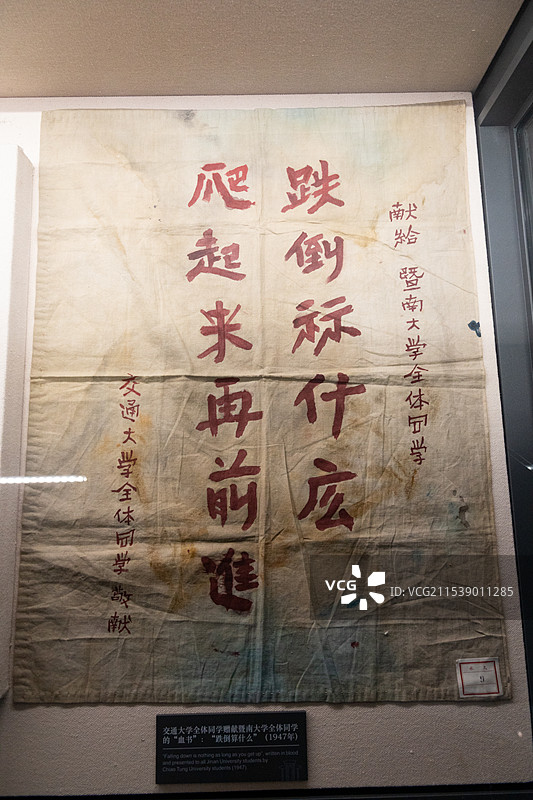 献给 暨南大学全体同学
跌倒祘什庅
爬起来再前進
交通大学全体同学 敬献
交通大学全体同学赠献暨南大学全体同学
的“血书”：“跌倒算什么”（1947年）
"Falling down is nothing as long as you get up", written in blood
and presented to all Jinan University students by
Chiao Tung University students (1947)
VCG
ID:VCG211539011285
9